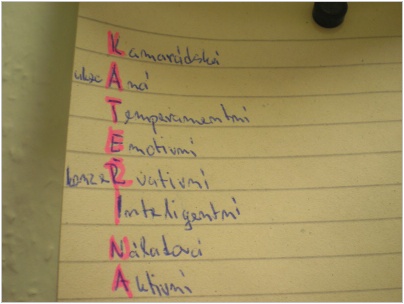 Kamarádská
ukecAná
Temperamentní
Emotivní
konzeŘvativní
Inteligentní
Náladová
Aktivní